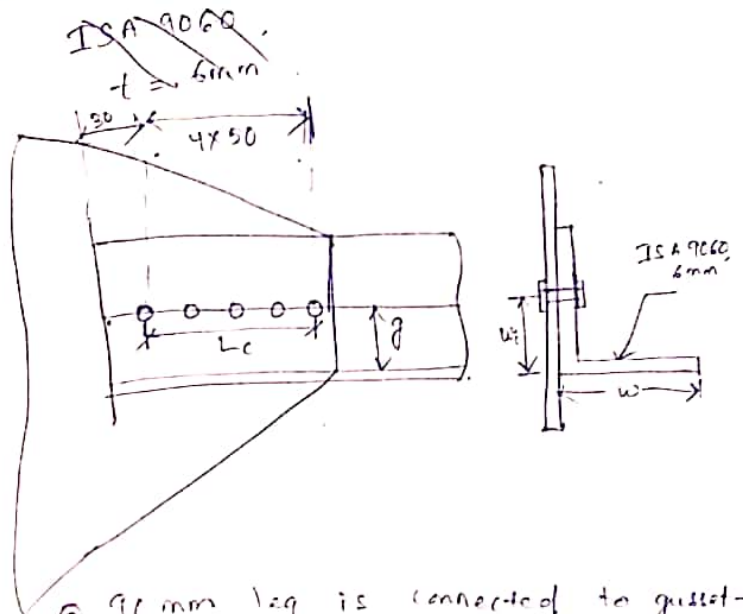 ISA 9060
t = 6mm
30
4×50
Lc
g
ISA 9060,
6mm
w
90 mm leg is connected to gusset-